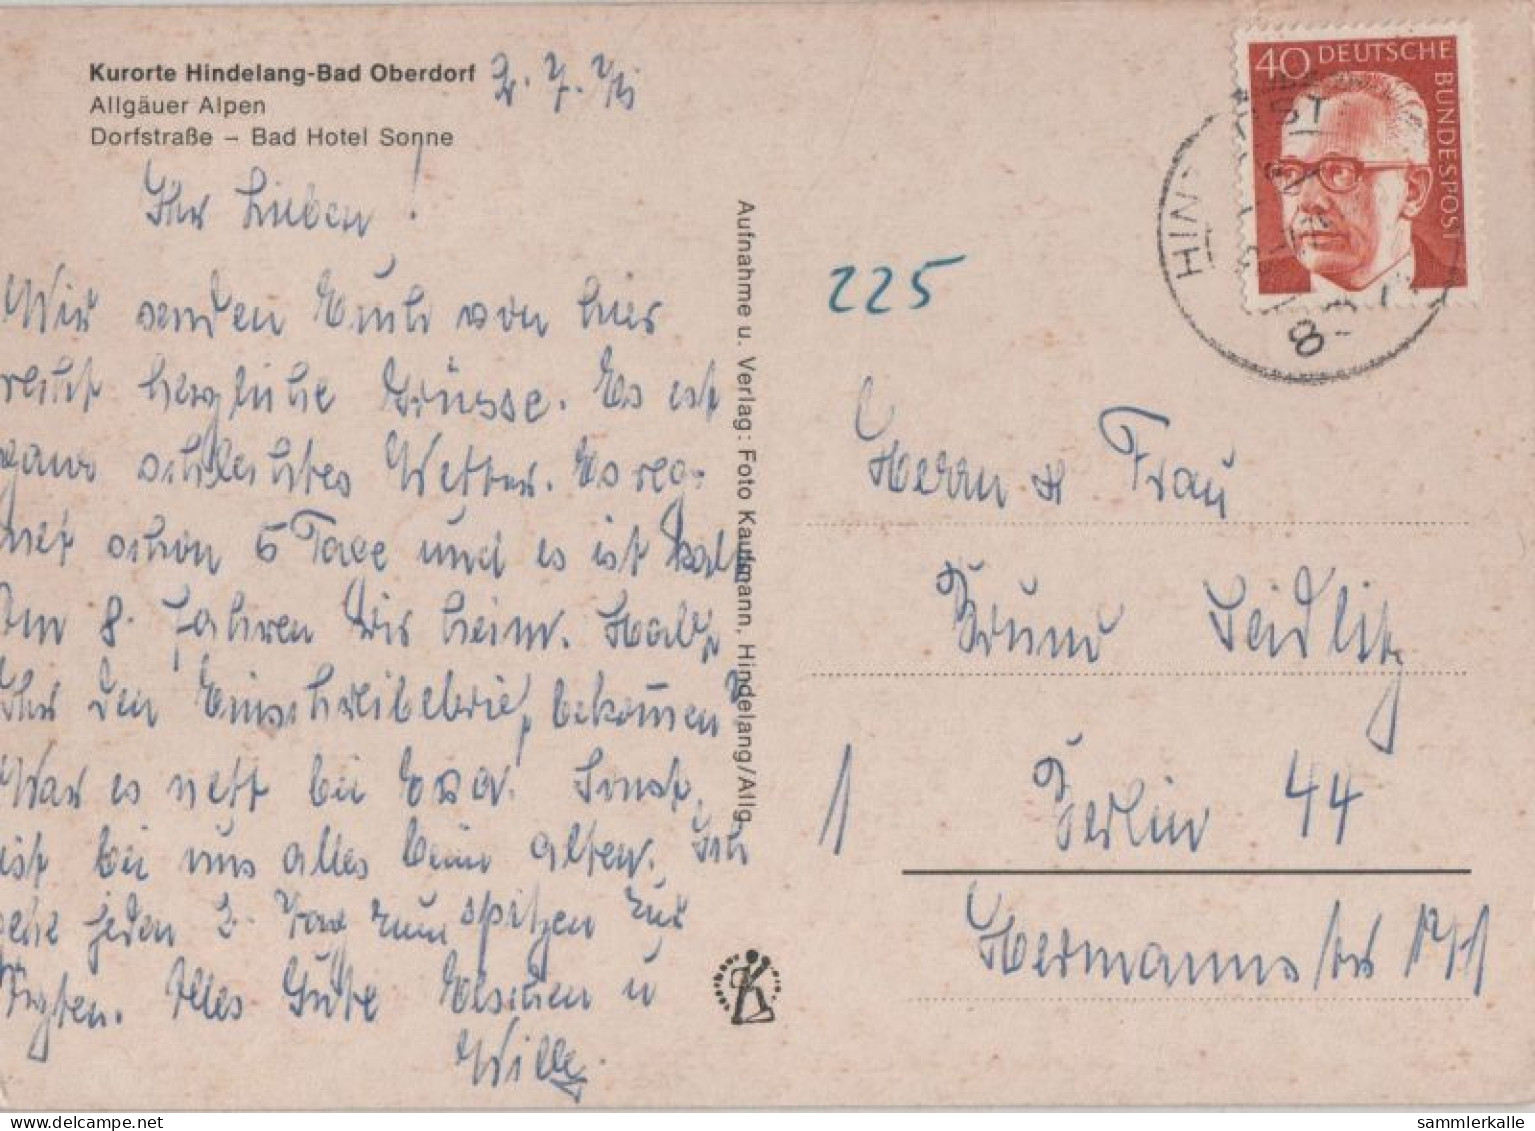 Kurorte Hindelang-Bad Oberdorf
Allgäuer Alpen
Dorfstraße – Bad Hotel Sonne
2. 7. 71
Ihr Lieben!
Wir senden Euch von hier
recht herzliche Grüsse. Es ist
ganz schlechtes Wetter. Es reg-
net schon 5 Tage und es ist kalt
Am 8. fahren wir heim. Habt
Ihr den Einschreibebrief bekommen?
War es nett bei Eva. Sonst
ist bei uns alles beim alten. Ich
gehe jeden 2. Tag zum spritzen zur
Alles Gute Elschen u
Willi
Aufnahme u. Verlag: Foto Kaufmann, Hindelang/Allg.
40 DEUTSCHE
BUNDESPOST
HIN
8
225
Herrn u Frau
Bruno Seidlitz
1 Berlin 44
Hermannstr
sammlerkalle